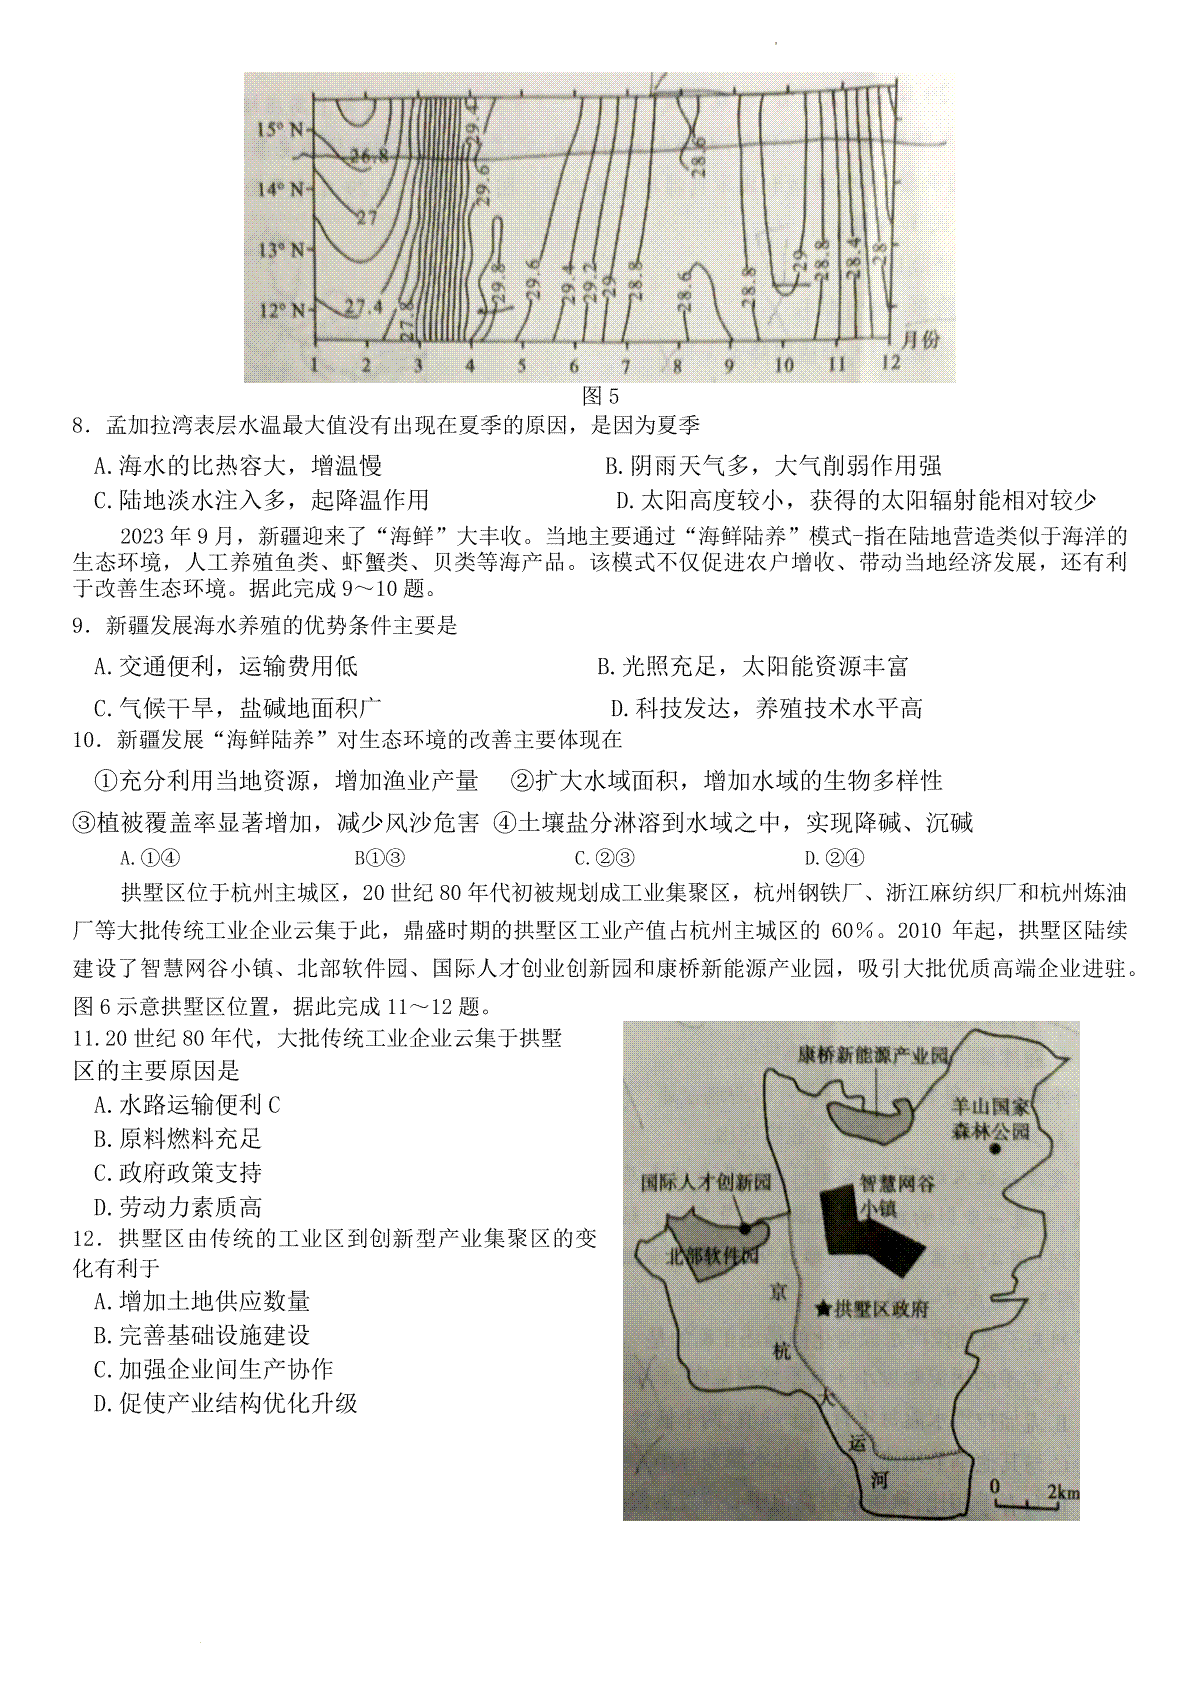 15° N
14° N
13° N
12° N
26.8
27
27.4
27.8
29.4
29.6
29.8
29.6
29.4
29.2
29
28.8
28.6
28.6
28.8
29
28.8
28.4
28
1 2 3 4 5 6 7 8 9 10 11 12
月份
图 5
8．孟加拉湾表层水温最大值没有出现在夏季的原因，是因为夏季
A.海水的比热容大，增温慢 B.阴雨天气多，大气削弱作用强
C.陆地淡水注入多，起降温作用 D.太阳高度较小，获得的太阳辐射能相对较少
2023 年 9 月，新疆迎来了“海鲜”大丰收。当地主要通过“海鲜陆养”模式-指在陆地营造类似于海洋的
生态环境，人工养殖鱼类、虾蟹类、贝类等海产品。该模式不仅促进农户增收、带动当地经济发展，还有利
于改善生态环境。据此完成 9～10 题。
9．新疆发展海水养殖的优势条件主要是
A.交通便利，运输费用低 B.光照充足，太阳能资源丰富
C.气候干旱，盐碱地面积广 D.科技发达，养殖技术水平高
10．新疆发展“海鲜陆养”对生态环境的改善主要体现在
①充分利用当地资源，增加渔业产量 ②扩大水域面积，增加水域的生物多样性
③植被覆盖率显著增加，减少风沙危害 ④土壤盐分淋溶到水域之中，实现降碱、沉碱
A.①④ B①③ C.②③ D.②④
拱墅区位于杭州主城区，20 世纪 80 年代初被规划成工业集聚区，杭州钢铁厂、浙江麻纺织厂和杭州炼油
厂等大批传统工业企业云集于此，鼎盛时期的拱墅区工业产值占杭州主城区的 60%。2010 年起，拱墅区陆续
建设了智慧网谷小镇、北部软件园、国际人才创业创新园和康桥新能源产业园，吸引大批优质高端企业进驻。
图 6 示意拱墅区位置，据此完成 11～12 题。
11.20 世纪 80 年代，大批传统工业企业云集于拱墅
区的主要原因是
A.水路运输便利 C
B.原料燃料充足
C.政府政策支持
D.劳动力素质高
12．拱墅区由传统的工业区到创新型产业集聚区的变
化有利于
A.增加土地供应数量
B.完善基础设施建设
C.加强企业间生产协作
D.促使产业结构优化升级
康桥新能源产业园
羊山国家
森林公园
国际人才创新园
智慧网谷
小镇
北部软件园
拱墅区政府
京
杭
大
运
河
0 2km